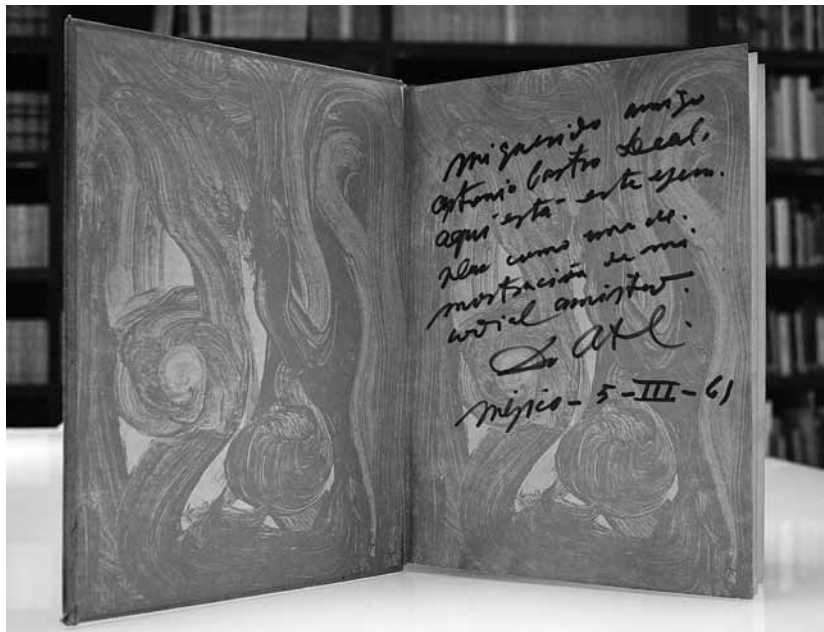 mi querido amigo
Antonio Castro Leal,
aquí está este ejem-
plar como una de-
mostración de mi
cordial amistad.
Dr Atl.
Méjico - 5 - III - 61